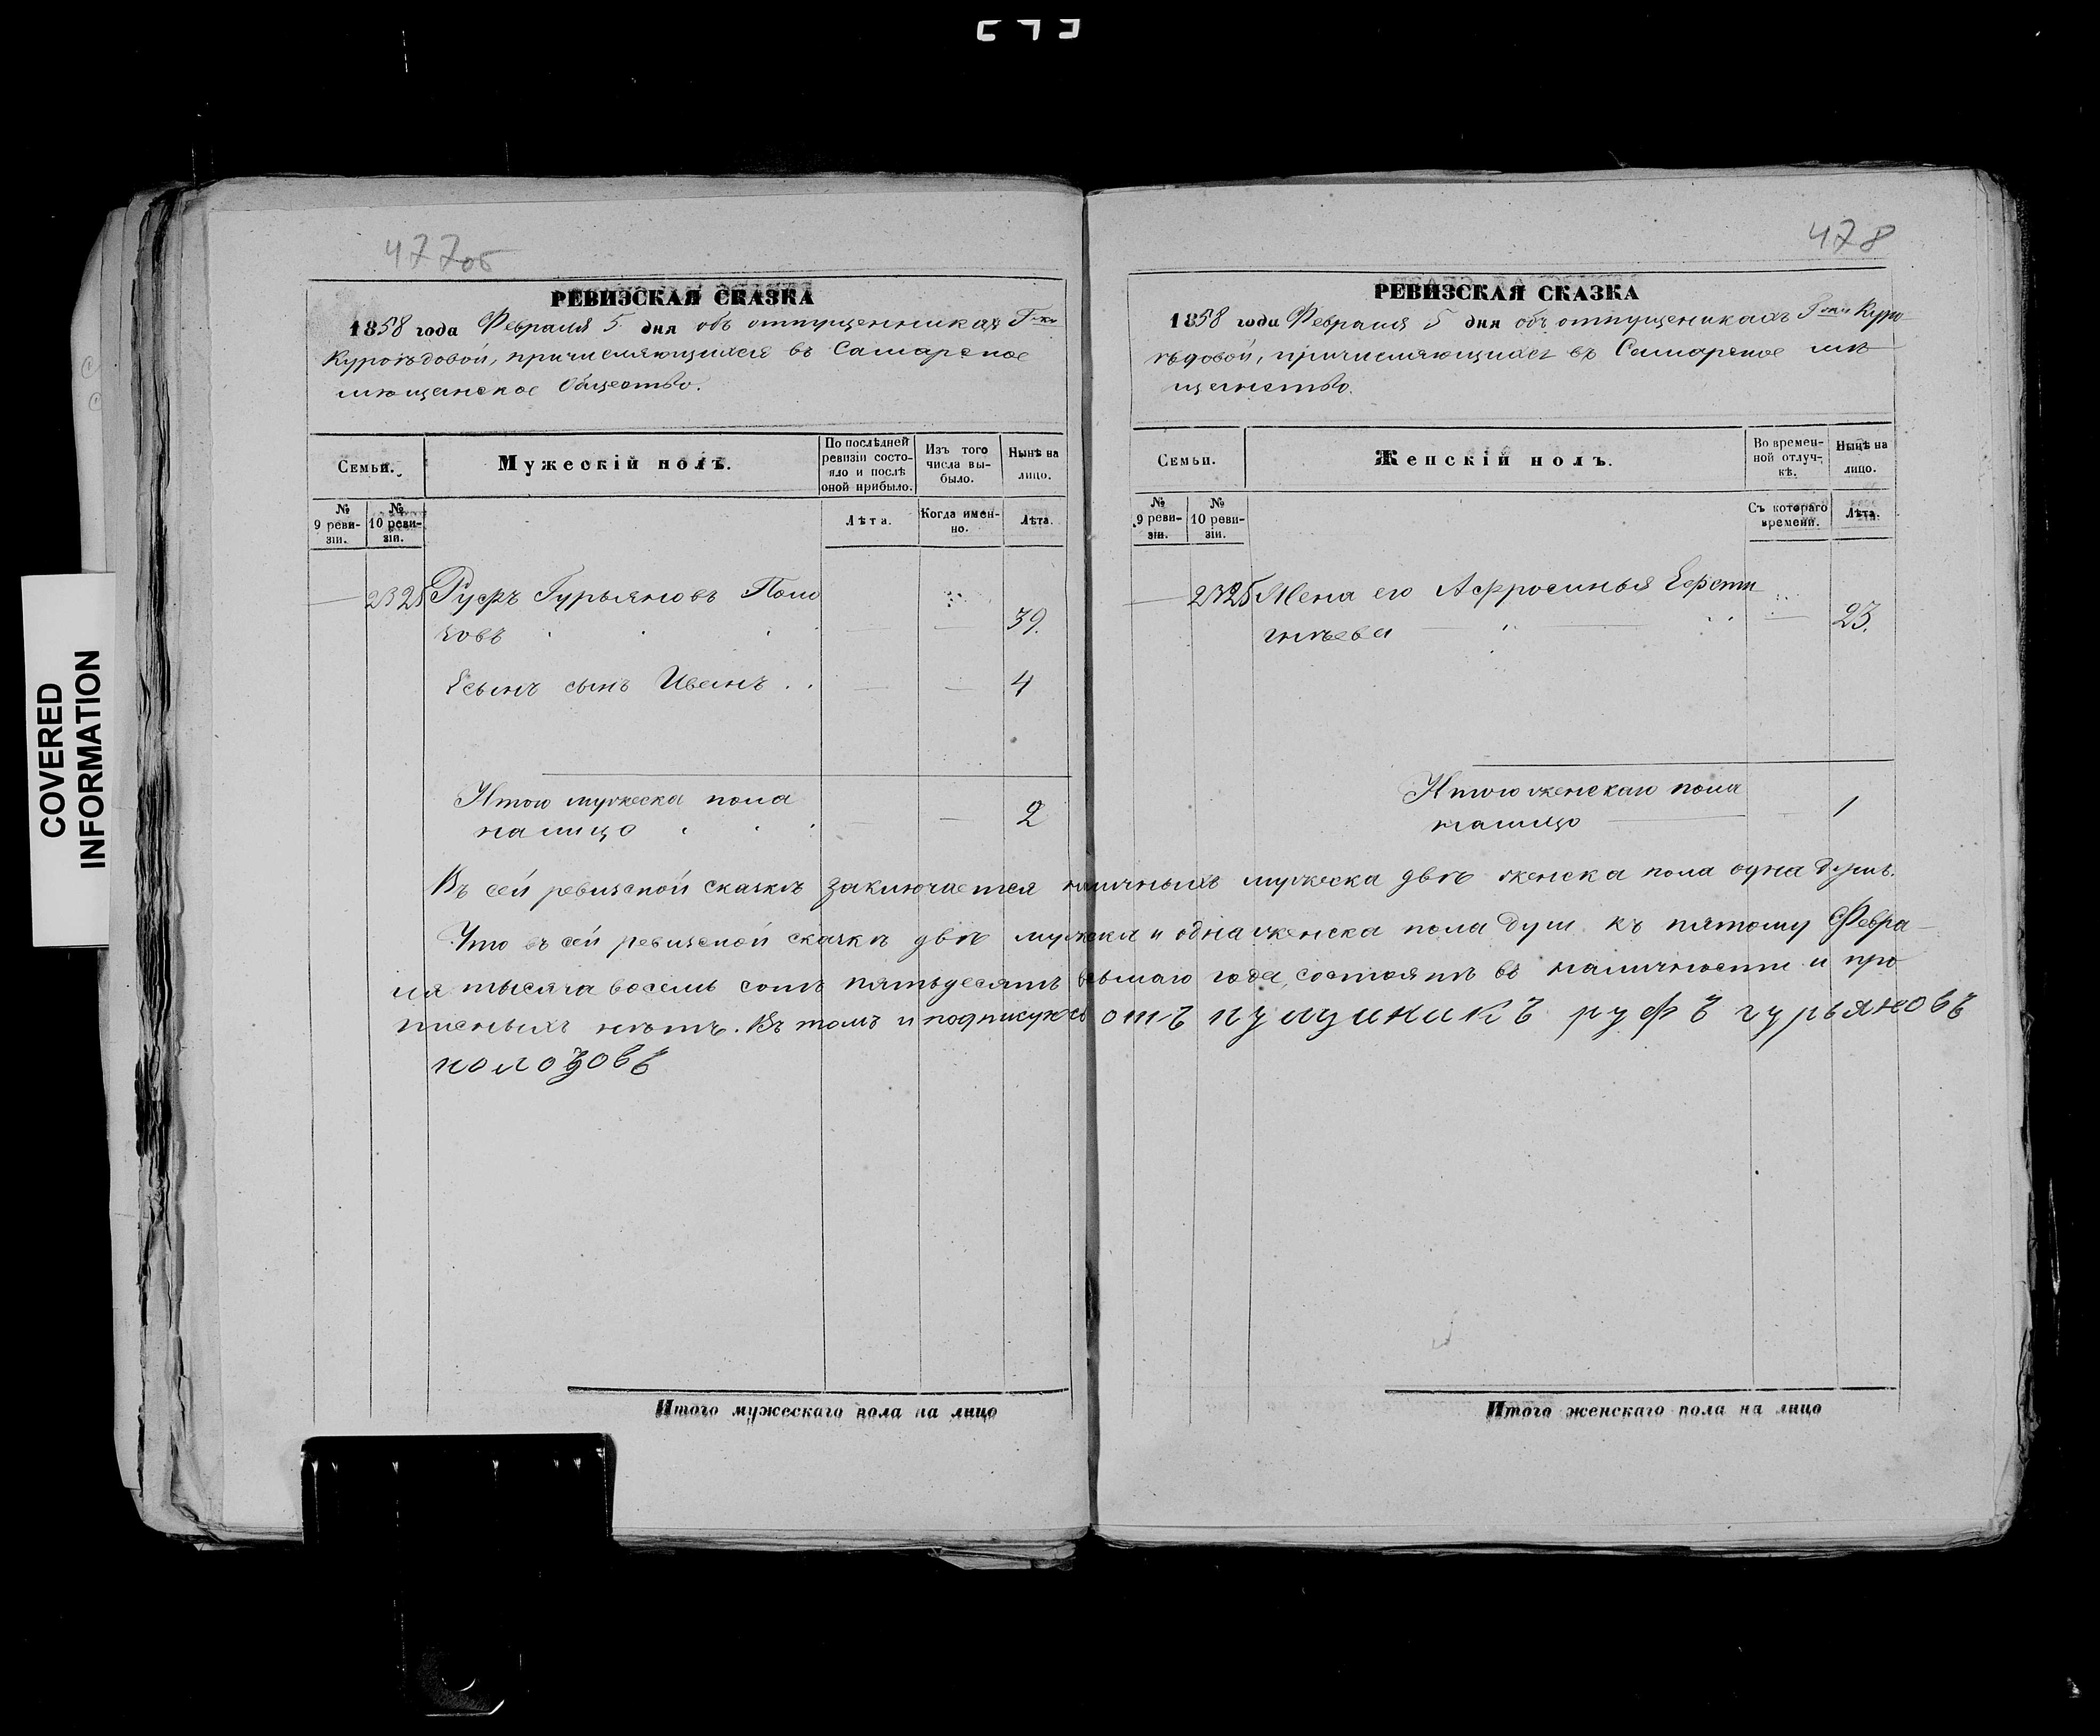 477об
РЕВИЗСКАЯ СКАЗКА
1858 года Февраля 5 дня объ отпущенникахъ Г-жи
Куроѣдовой, причисляющихся въ Самарское
мѣщанское Общество.
Семьи.
Мужескій полъ.
По послѣдней ревизіи состояло и послѣ оной прибыло.
Изъ того числа выбыло.
Нынѣ на лицо.
№ 9 ревизіи.
№ 10 ревизіи.
Лѣта.
Когда именно.
Лѣта.
2325 Руфъ Гурьяновъ Поло
зовъ 39.
Есынъ сынъ Иванъ . . 4
Итого мужеска пола
налицо 2
478
РЕВИЗСКАЯ СКАЗКА
1858 года Февраля 5 дня объ отпущеникахъ Г-жи Куро
ѣдовой, причисляющихся въ Самарское мѣ
щанство.
Семьи.
Женскій полъ.
Во временной отлучкѣ.
Нынѣ на лицо.
№ 9 ревизіи.
№ 10 ревизіи.
Съ котораго времени.
Лѣта.
2325 Жена его Афросинья Евсти
гнѣева 23.
Итого женскаго пола
налицо 1
Въ сей ревизской сказкѣ заключается наличныхъ мужеска двѣ женска пола одна душъ.
Что въ сей ревизской сказкѣ двѣ мужска и одна женска пола душ къ пятому Февра-
ля тысяча восемь сотъ пятьдесятъ восьмаго года, состоятъ въ наличности и про
писныхъ нѣтъ. Въ томъ и подписуюсь отъ пущиникъ руфъ гурьяновъ
полозовъ
Итого мужескаго пола на лицо
Итого женскаго пола на лицо
COVERED
INFORMATION